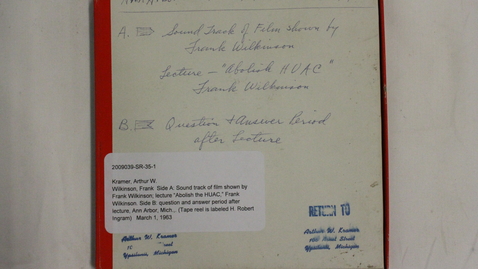 A. Sound Track of Film shown by
Frank Wilkinson
Lecture - "Abolish HUAC"
Frank Wilkinson
B. Question + Answer Period
after Lecture
2009039-SR-35-1
Kramer, Arthur W.
Wilkinson, Frank Side A. Sound track of film shown by
Frank Wilkinson; lecture "Abolish the HUAC," Frank
Wilkinson. Side B: question and answer period after
lecture, Ann Arbor, Mich., (Tape reel is labeled H. Robert
Ingram) March 1, 1963
RETURN TO
Arthur W. Kramer
Ypsilanti, Michigan
Arthur W. Kramer
Street
Ypsilanti, Michigan